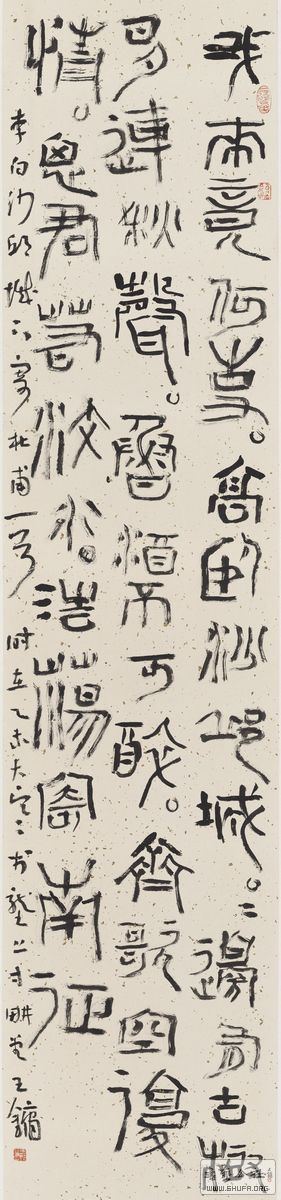 我來竟何事。高臥沙邱城。〻邊有古樹
日夕連秋聲。魯酒不可醉。齊歌空復
情。思君若汶水。浩蕩寄南征
李白沙邱城下寄杜甫一首 時在乙未大寒 上寸耕堂 王鏞
WWW.SHUFA.ORG